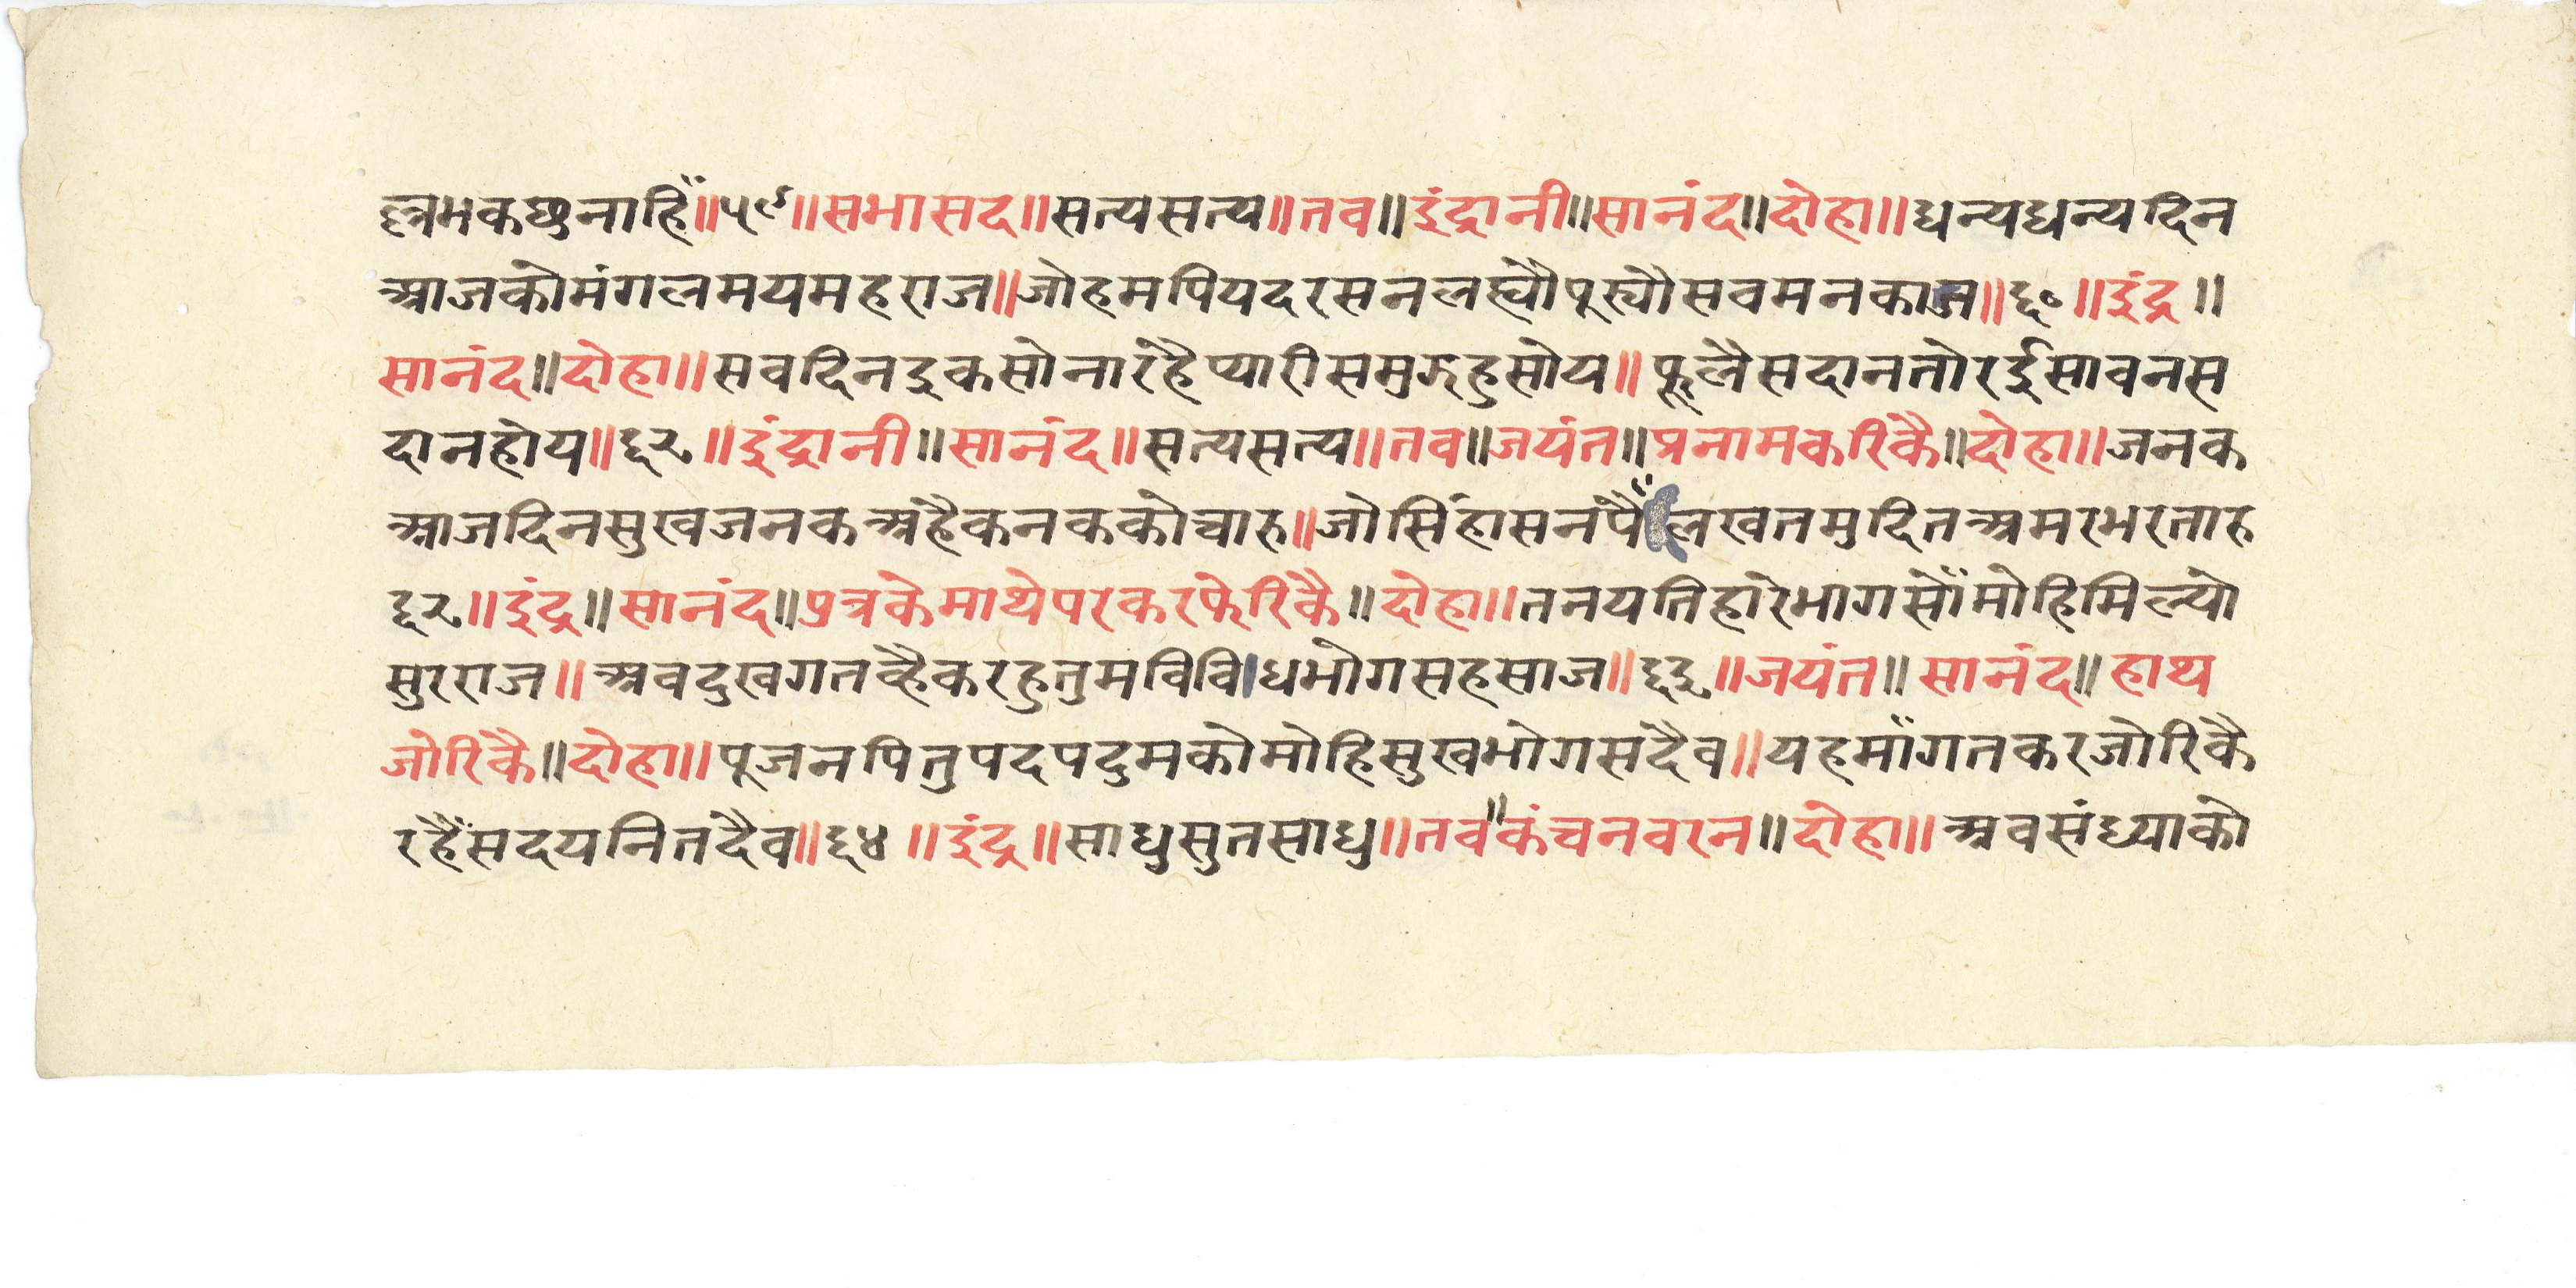 ह्नमकछुनाहिँ॥५९॥सभासद॥सत्यसत्य॥तव॥इंद्रानी॥सानंद॥दोहा॥धन्यधन्यदिन
आजकोमंगलमयमहराज॥जोहमपियदरसनलह्यौपुज्यौसवमनकाज॥६०॥इंद्र॥
सानंद॥दोहा॥सवदिनइकसोनारहैप्यारीसमुझहुसोय॥फूलैसदानतोरईसावनस
दानहोय॥६१॥इंद्रानी॥सानंद॥सत्यसत्य॥तव॥जयंत॥प्रनामकरिकै॥दोहा॥जनक
आजदिनसुखजनकअहैकनककोचारु॥जोसिंहासनपैँलखतमुदितअमरभरतारु
६२॥इंद्र॥सानंद॥पुत्रकेमाथेपरकरफेरिकै॥दोहा॥तनयतिहारेभागसोँमोहिमिल्यो
सुरराज॥अवदुखगतव्हैकरहुतुमविविधभोगसहसाज॥६३॥जयंत॥सानंद॥हाथ
जोरिकै॥दोहा॥पूजनपितुपदपदुमकोमोहिसुखभोगसदैव॥यहमाँगतकरजोरिकै
रहैँसदयनितदैव॥६४॥इंद्र॥साधुसुतसाधु॥तव॥कंचनवरन॥दोहा॥अवसंध्याको